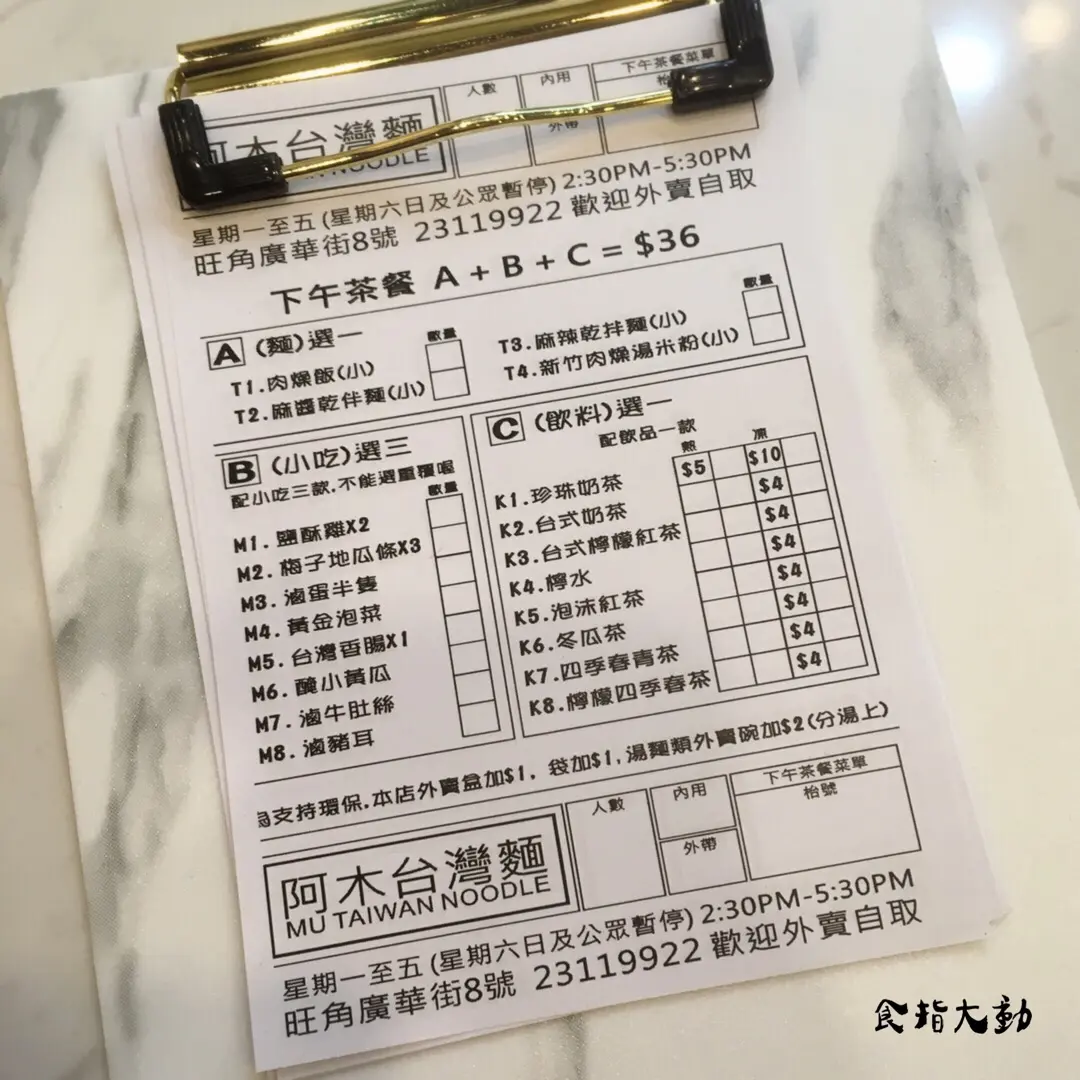 人數
內用
下午茶餐菜單
木台灣麵
NOODLE
外帶
星期一至五 (星期六日及公眾暫停) 2:30PM-5:30PM
旺角廣華街8號 23119922 歡迎外賣自取
下午茶餐 A + B + C = $36
A (麵)選一
數量
T1.肉燥飯(小)
T2.麻醬乾伴麵(小)
數量
T3.麻辣乾拌麵(小)
T4.新竹肉燥湯米粉(小)
B (小吃)選三
配小吃三款.不能選重覆喔
數量
M1. 鹽酥雞X2
M2. 梅子地瓜條X3
M3. 滷蛋半隻
M4. 黃金泡菜
M5. 台灣香腸X1
M6. 醃小黃瓜
M7. 滷牛肚絲
M8. 滷豬耳
C (飲料)選一
配飲品一款
熱 凍
K1.珍珠奶茶 $5 $10
K2.台式奶茶 $4
K3.台式檸檬紅茶 $4
K4.檸水 $4
K5.泡沫紅茶 $4
K6.冬瓜茶 $4
K7.四季春青茶 $4
K8.檸檬四季春茶 $4
為支持環保.本店外賣盒加$1, 袋加$1,湯麵類外賣碗加$2(分湯上)
阿木台灣麵
MU TAIWAN NOODLE
人數
內用
外帶
下午茶餐菜單
枱號
星期一至五 (星期六日及公眾暫停) 2:30PM-5:30PM
旺角廣華街8號 23119922 歡迎外賣自取
食指大動